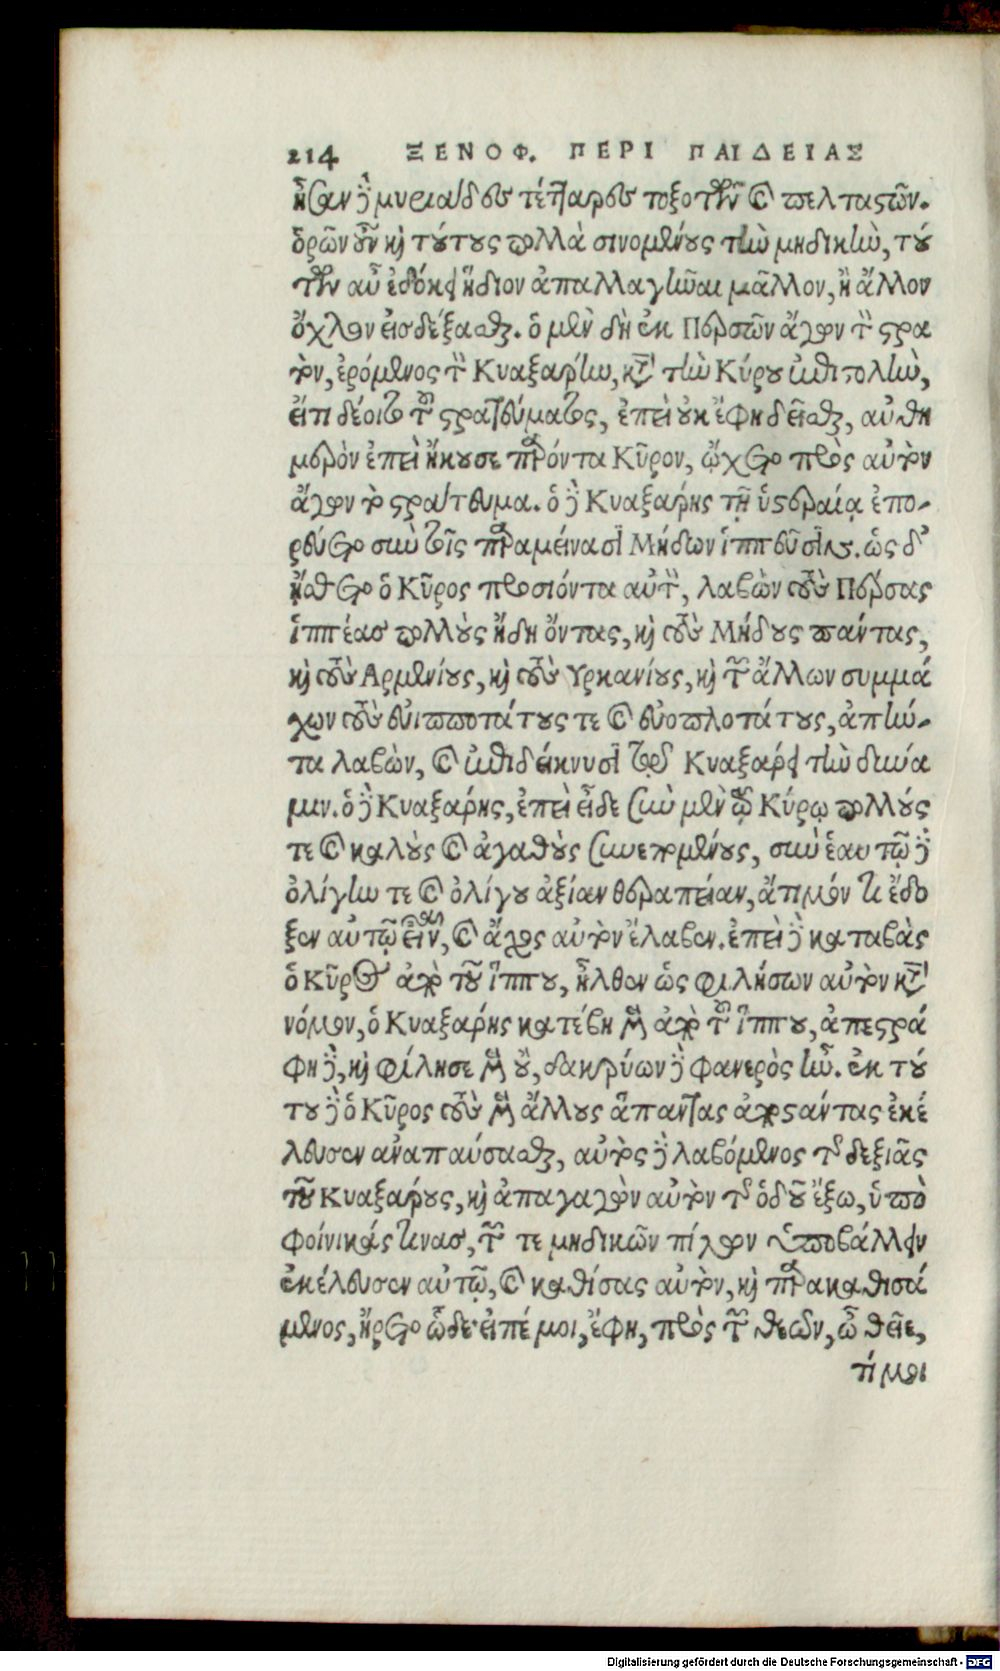 214 ΞΕΝΟΦ. ΠΕΡΙ ΠΑΙΔΕΙΑΣ
ἦσαν δὲ μυριάδες τέτταρες τοξοτῶν καὶ πελταστῶν.
ὁρῶν οὖν καὶ τούτους πολλὰ σινομένους τὴν μηδικὴν, τού
των αὖ ἐδόκει ἥδιον ἀπαλλαγῆναι μᾶλλον, ἢ ἄλλον
ὄχλον εἰσδέξασθαι. ὁ μὲν δὴ ἐκ Περσῶν ἄγων τὸν στρα
τὸν, ἐρόμενος τὸν Κυαξάρην, κατὰ τὴν Κύρου ἐπιστολὴν,
εἴ τι δέοιτο τοῦ στρατεύματος, ἐπεὶ οὐκ ἔφη δεῖσθαι, αὐθη
μερὸν ἐπεὶ ἤκουσε παρόντα Κῦρον, ᾤχετο πρὸς αὐτὸν
ἄγων τὸ στράτευμα. ὁ δὲ Κυαξάρης τῇ ὑστεραίᾳ ἐπο-
ρεύετο σὺν τοῖς παραμείνασι Μήδων ἱππεῦσιν. ὡς δ'
ᾔσθετο ὁ Κῦρος προσιόντα αὐτὸν, λαβὼν τοὺς Πέρσας
ἱππέας πολλοὺς ἤδη ὄντας, καὶ τοὺς Μήδους πάντας,
καὶ τοὺς Αρμενίους, καὶ τοὺς Υρκανίους, καὶ τῶν ἄλλων συμμά
χων τοὺς εὐιπποτάτους τε καὶ εὐοπλοτάτους, ἀπήν-
τα λαβὼν, καὶ ἐπιδείκνυσι τῷ Κυαξάρει τὴν δύνα
μιν. ὁ δὲ Κυαξάρης, ἐπεὶ εἶδε σὺν μὲν τῷ Κύρῳ πολλούς
τε καὶ καλοὺς καὶ ἀγαθοὺς συνεπομένους, σὺν ἑαυτῷ δὲ
ὀλίγην τε καὶ ὀλίγου ἀξίαν θεραπείαν, ἄτιμόν τι ἔδο
ξεν αὐτῷ εἶναι, καὶ ἄχος αὐτὸν ἔλαβεν. ἐπεὶ δὲ καταβὰς
ὁ Κῦρος ἀπὸ τοῦ ἵππου, ἦλθεν ὡς φιλήσων αὐτὸν κατὰ
νόμον, ὁ Κυαξάρης κατέβη μὲν ἀπὸ τοῦ ἵππου, ἀπεστρά
φη δὲ, καὶ φίλησε μὲν οὒ, δακρύων δὲ φανερὸς ἦν. ἐκ τού
του δὲ ὁ Κῦρος τοὺς μὲν ἄλλους ἅπαντας ἀποστάντας ἐκέ
λευσεν ἀναπαύσασθαι, αὐτὸς δὲ λαβόμενος τῆς δεξιᾶς
τοῦ Κυαξάρους, καὶ ἀπαγαγὼν αὐτὸν τῆς ὁδοῦ ἔξω, ὑπὸ
φοίνικάς τινας, τῶν τε μηδικῶν πίλων ὑποβάλλειν
ἐκέλευσεν αὐτῷ, καὶ καθίσας αὐτὸν, καὶ παρακαθισά
μενος, ἤρετο ὧδε· εἰπέ μοι, ἔφη, πρὸς τῶν θεῶν, ὦ θεῖε,
τί μοι
Digitalisierung gefördert durch die Deutsche Forschungsgemeinschaft - DFG